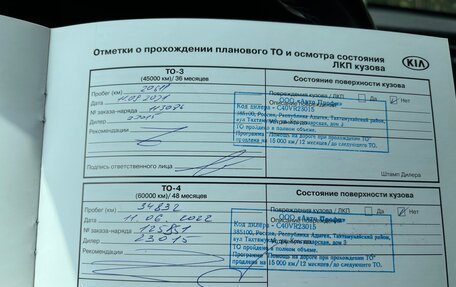 Отметки о прохождении планового ТО и осмотра состояния
ЛКП кузова
KIA
ТО-3
(45000 км)/ 36 месяцев
Состояние поверхности кузова
Пробег (км)
Повреждения кузова / ЛКП
Да
Нет
Дата
Описание
№ заказа-наряда
Дилер 23015
Рекомендации
ООО «Авто Профи»
Код дилера - C40VR23015
385100, Россия, Республика Адыгея, Тахтамукайский район,
ТО пройдено в полном объеме.
Программа "Помощь на дороге при прохождении ТО"
продлена на 15 000 км/12 месяцев/до следующего ТО.
Подпись ответственного лица
Штамп Дилера
ТО-4
(60000 км)/ 48 месяцев
Состояние поверхности кузова
Пробег (км) 34832
Повреждения кузова / ЛКП
Да
Нет
Дата 11.06.2022
№ заказа-наряда
Дилер 23015
Рекомендации
ООО «Авто Профи»
Код дилера - C40VR23015
385100, Россия, Республика Адыгея, Тахтамукайский район,
ТО пройдено в полном объеме.
Программа "Помощь на дороге при прохождении ТО"
продлена на 15 000 км/12 месяцев/до следующего ТО.